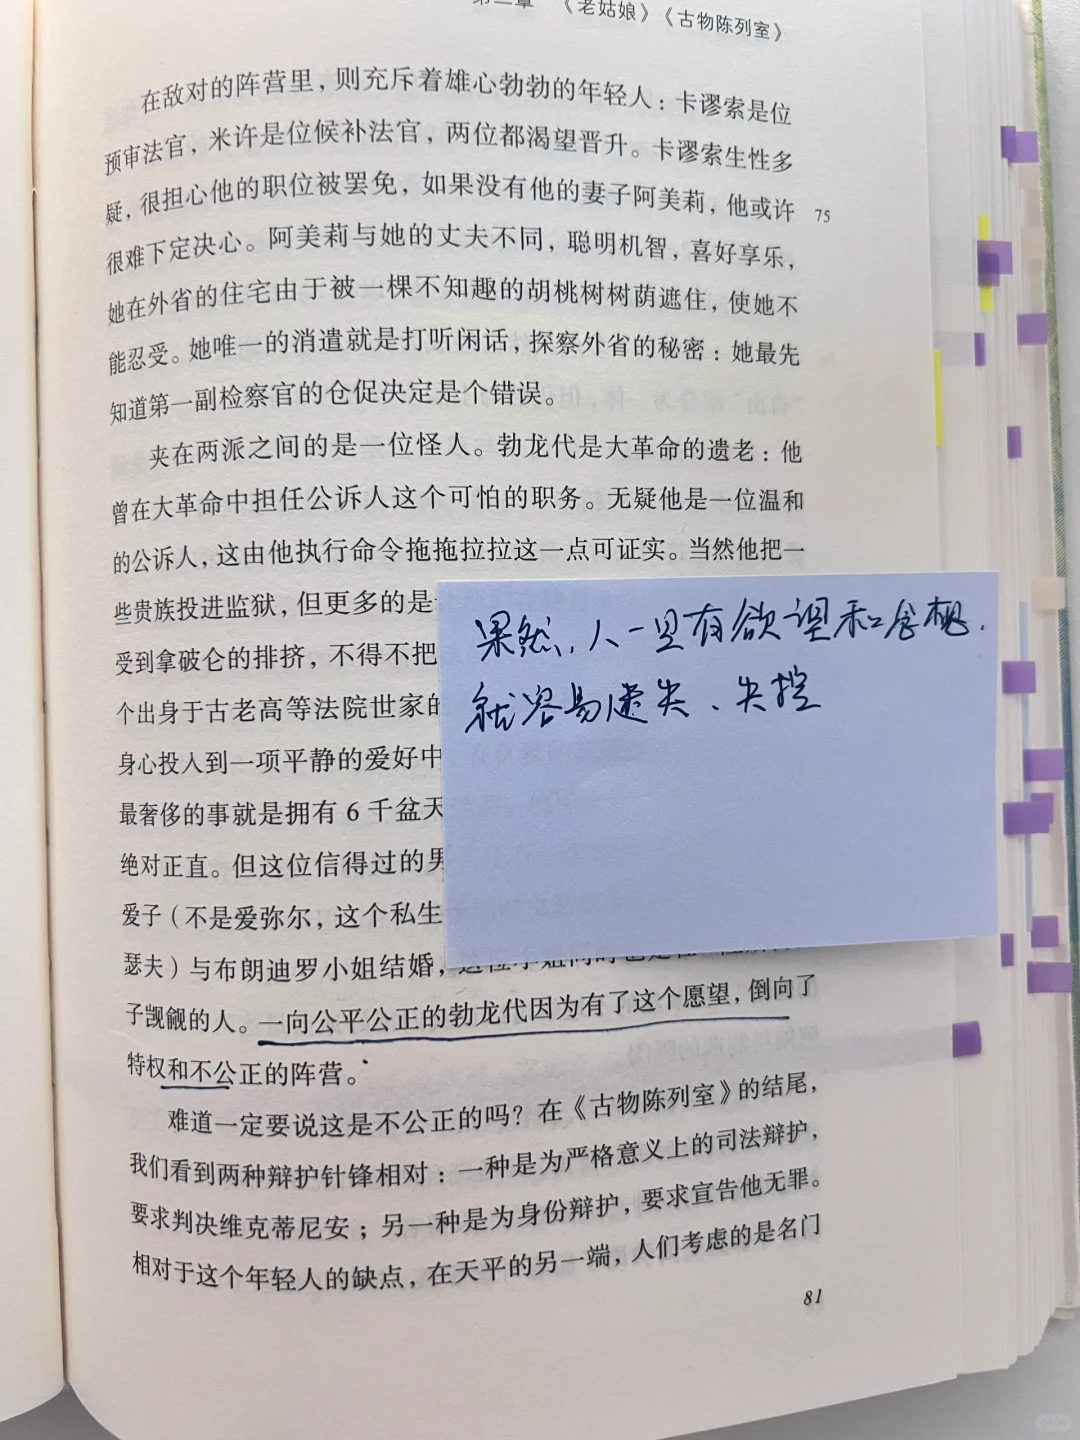 第二章 《老姑娘》《古物陈列室》
在敌对的阵营里，则充斥着雄心勃勃的年轻人：卡谬索是位
预审法官，米许是位候补法官，两位都渴望晋升。卡谬索生性多
疑，很担心他的职位被罢免，如果没有他的妻子阿美莉，他或许
75
很难下定决心。阿美莉与她的丈夫不同，聪明机智，喜好享乐，
她在外省的住宅由于被一棵不知趣的胡桃树树荫遮住，使她不
能忍受。她唯一的消遣就是打听闲话，探察外省的秘密：她最先
知道第一副检察官的仓促决定是个错误。
夹在两派之间的是一位怪人。勃龙代是大革命的遗老：他
曾在大革命中担任公诉人这个可怕的职务。无疑他是一位温和
的公诉人，这由他执行命令拖拖拉拉这一点可证实。当然他把一
些贵族投进监狱，但更多的是
受到拿破仑的排挤，不得不把
个出身于古老高等法院世家的
身心投入到一项平静的爱好中
最奢侈的事就是拥有6千盆天
绝对正直。但这位信得过的男
爱子（不是爱弥尔，这个私生
瑟夫）与布朗迪罗小姐结婚，
子觊觎的人。一向公平公正的勃龙代因为有了这个愿望，倒向了
特权和不公正的阵营。
难道一定要说这是不公正的吗？在《古物陈列室》的结尾，
我们看到两种辩护针锋相对：一种是为严格意义上的司法辩护，
要求判决维克蒂尼安；另一种是为身份辩护，要求宣告他无罪。
相对于这个年轻人的缺点，在天平的另一端，人们考虑的是名门
81
果然，人一旦有欲望和贪婪，
就容易迷失、失控